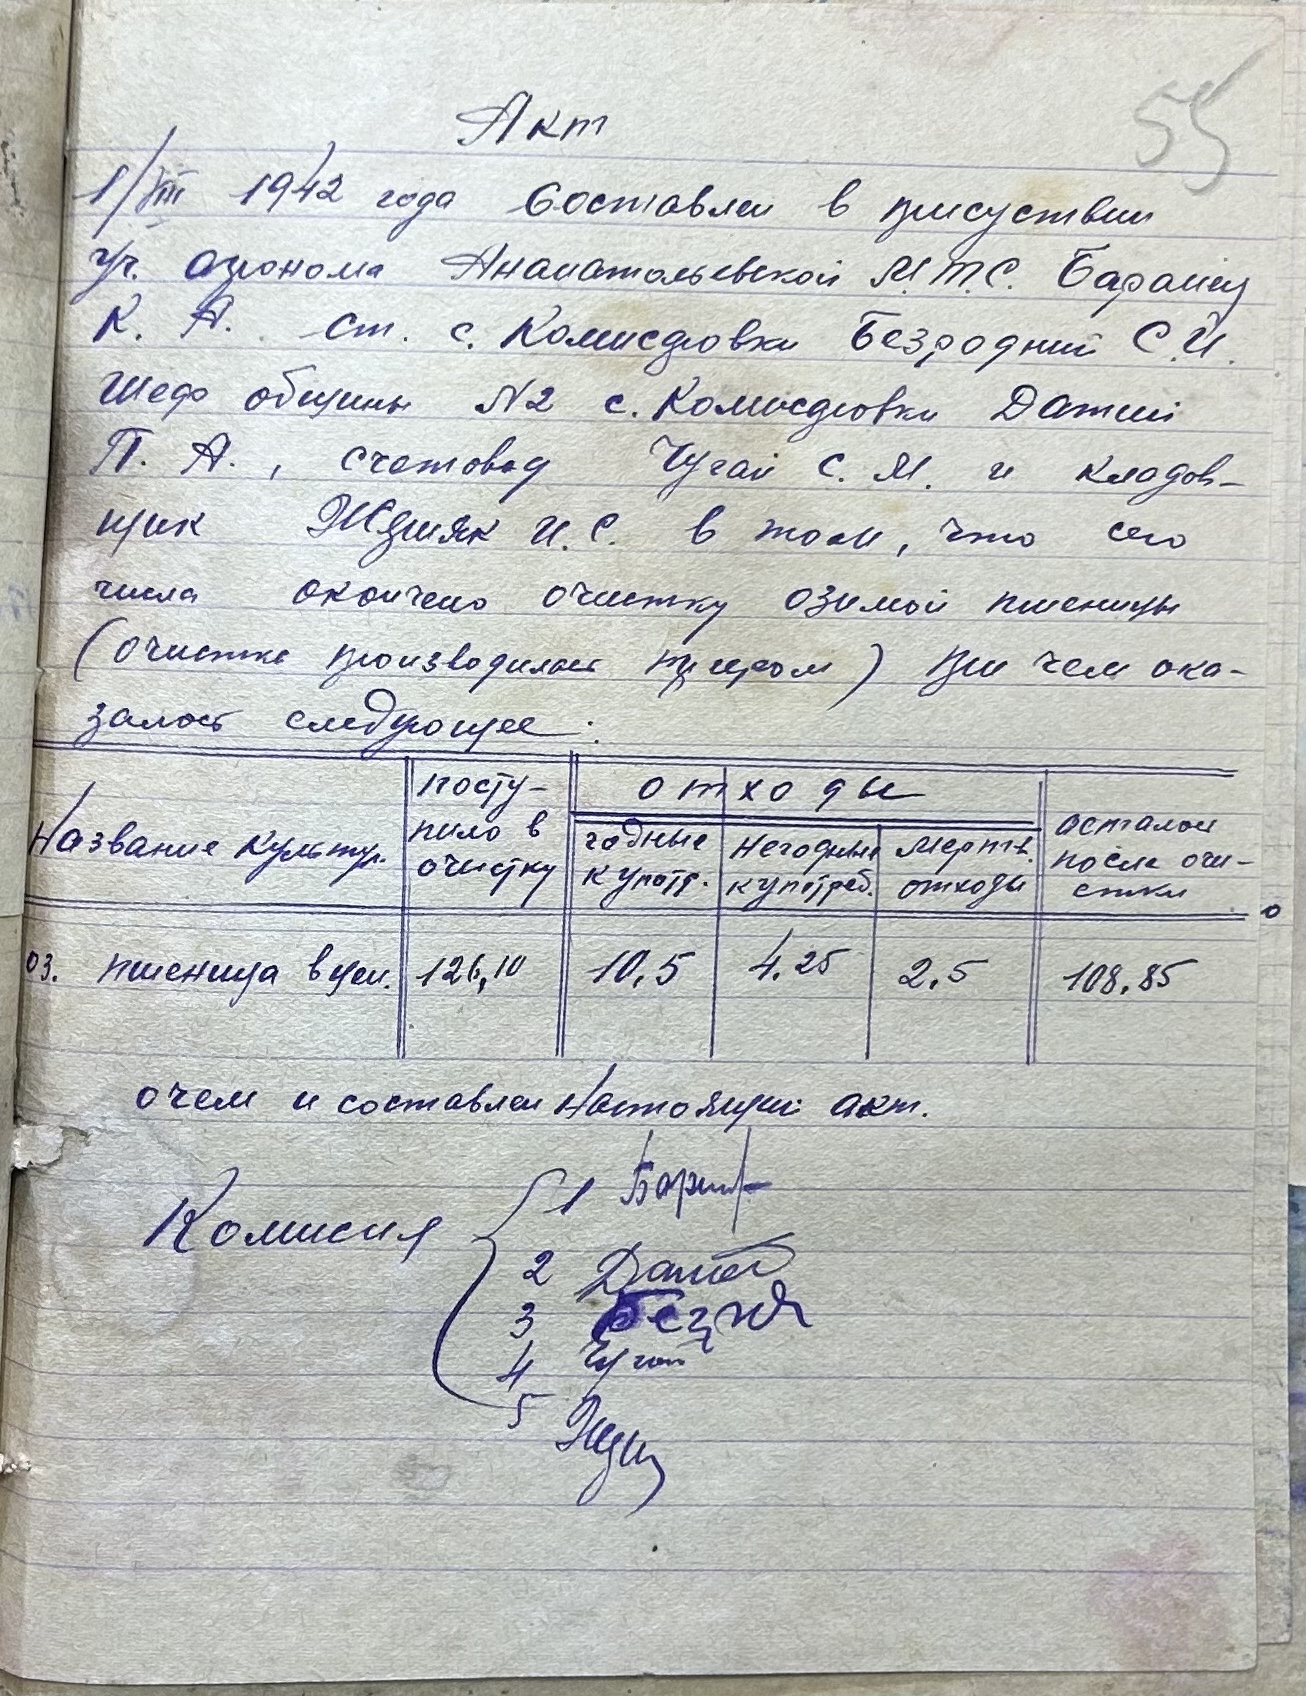 55
Акт
1/VIII 1942 года Составлен в присуствии
уч. агронома Анатольевской М.Т.С.
К. А. ст. с. Комисаровки Безродний С.И.
Шеф общины №2 с. Комисаровки Датий
П. А., счетовод Чугай С. М. и кладов-
щик И.С. в том, что сего
числа окончено очистку озимой пшеницы
(очистка производилась триером) При чем ока-
залось следующее:
Название культур. посту-пило в очистку отходы осталось после очи-стки
годные к употр. Негодные к употреб. Мертв. отходы
Оз. пшеница в цен. 126,10 10,5 4,25 2,5 108,85
о чем и составлен Настоящий акт.
Комисия
1
2 Датий
3
4 Чугай
5